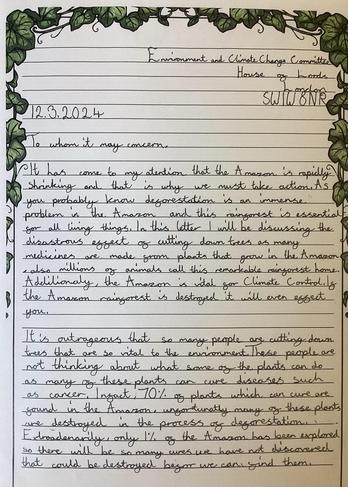 Environment and Climate Change Committe
House of Lords
London
SW1W 8NR
12.3.2024
To whom it may concern,
It has come to my atention that the Amazon is rapidly
shrinking and that is why we must take action. As
you probably know deforestation is an immense
problem in the Amazon and this rainforest is essential
for all living things. In this letter I will be discussing the
disastrous effect of cutting down trees as many
medicines are made from plants that grow in the Amazon
, also millions of animals call this remarkable rainforest home.
Additionaly, the Amazon is vital for Climate Control. If
the Amazon rainforest is destroyed it will even effect
you.
It is outrageous that so many people are cutting down
trees that are so vital to the environment. These people are
not thinking about what some of the plants can do
as many of these plants can cure diseases such
as cancer. Infact 70% of plants which can cure are
found in the Amazon, unfortunatly many of these plants
are destroyed in the process of deforestation.
Extraodenarily, only 1% of the Amazon has been explored
so there will be so many cures we have not discovered
that could be destroyed before we can find them.